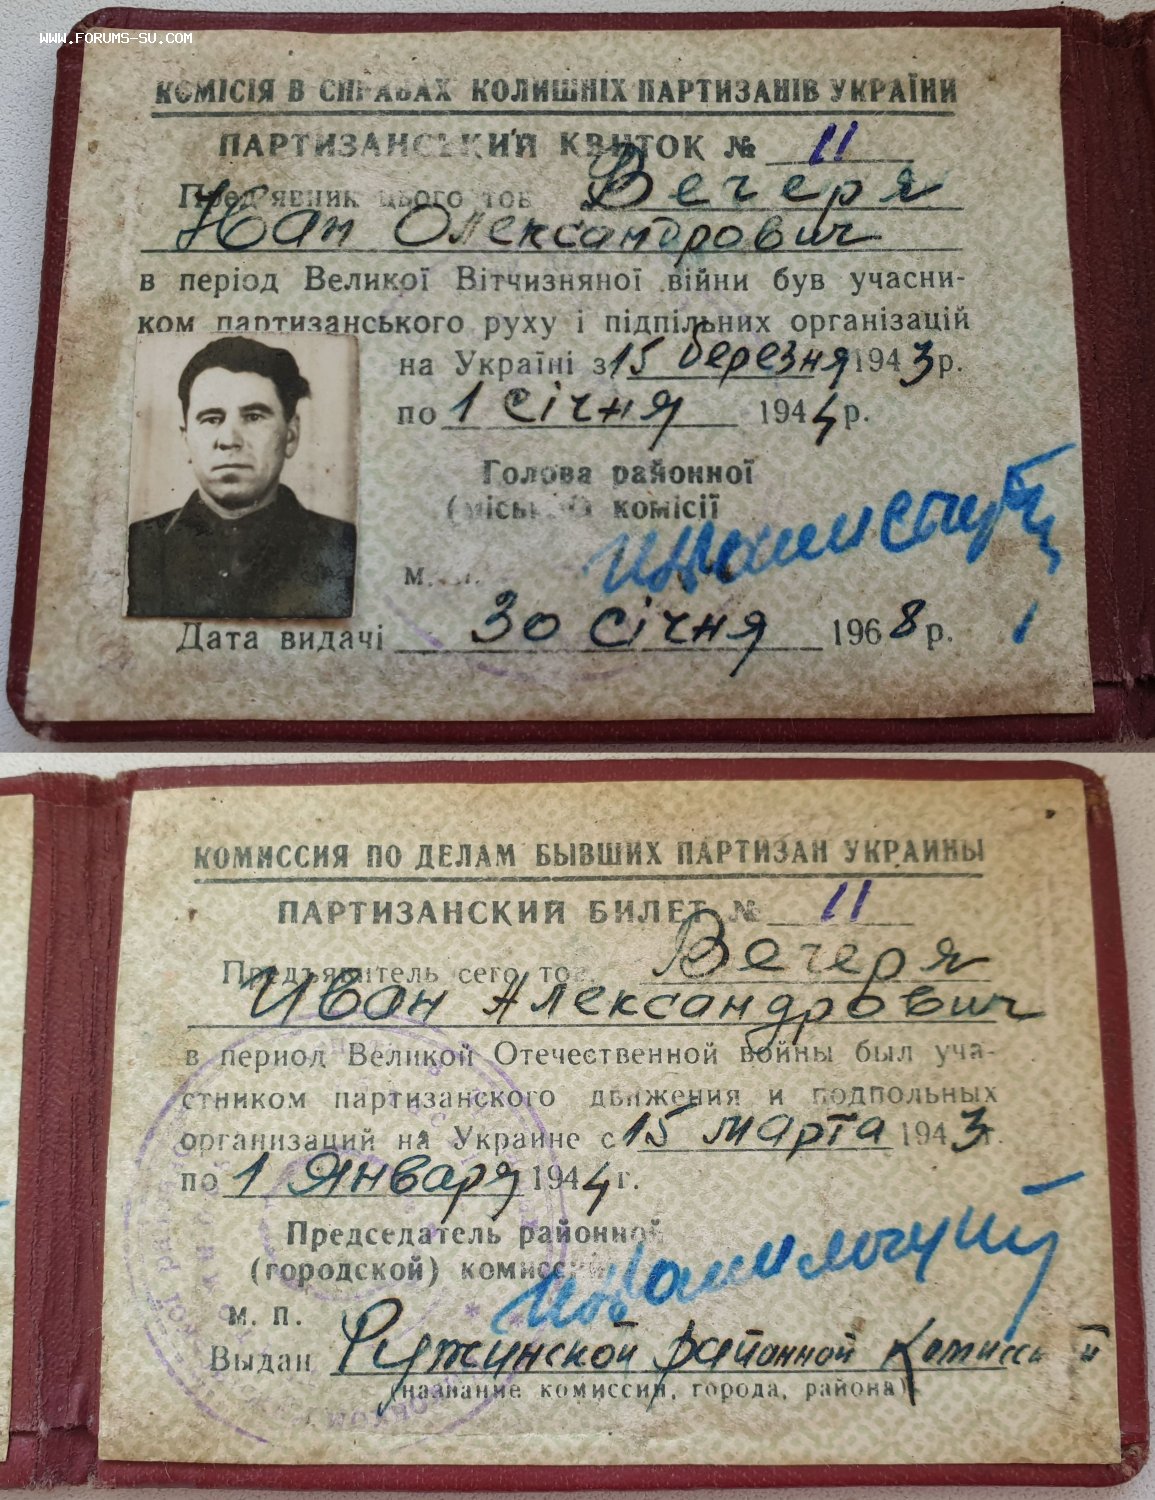 WWW.FORUMS-SU.COM
КОМІСІЯ В СПРАВАХ КОЛИШНІХ ПАРТИЗАНІВ УКРАЇНИ
ПАРТИЗАНСЬКИЙ КВИТОК № 11
Пред'явник цього тов. Вечеря
Іван Олександрович
в період Великої Вітчизняної війни був учасни-
ком партизанського руху і підпільних організацій
на Україні з 15 березня 1943 р.
по 1 січня 1944 р.
Голова районної
(міської) комісії
м. п.
Дата видачі 30 січня 1968 р.
КОМИССИЯ ПО ДЕЛАМ БЫВШИХ ПАРТИЗАН УКРАИНЫ
ПАРТИЗАНСКИЙ БИЛЕТ № 11
Предъявитель сего тов. Вечеря
Иван Александрович
в период Великой Отечественной войны был уча-
стником партизанского движения и подпольных
организаций на Украине с 15 марта 1943 г.
по 1 января 1944 г.
Председатель районной
(городской) комиссии
м. п.
Выдан Ружинской районной комиссией
(название комиссии, города, района)